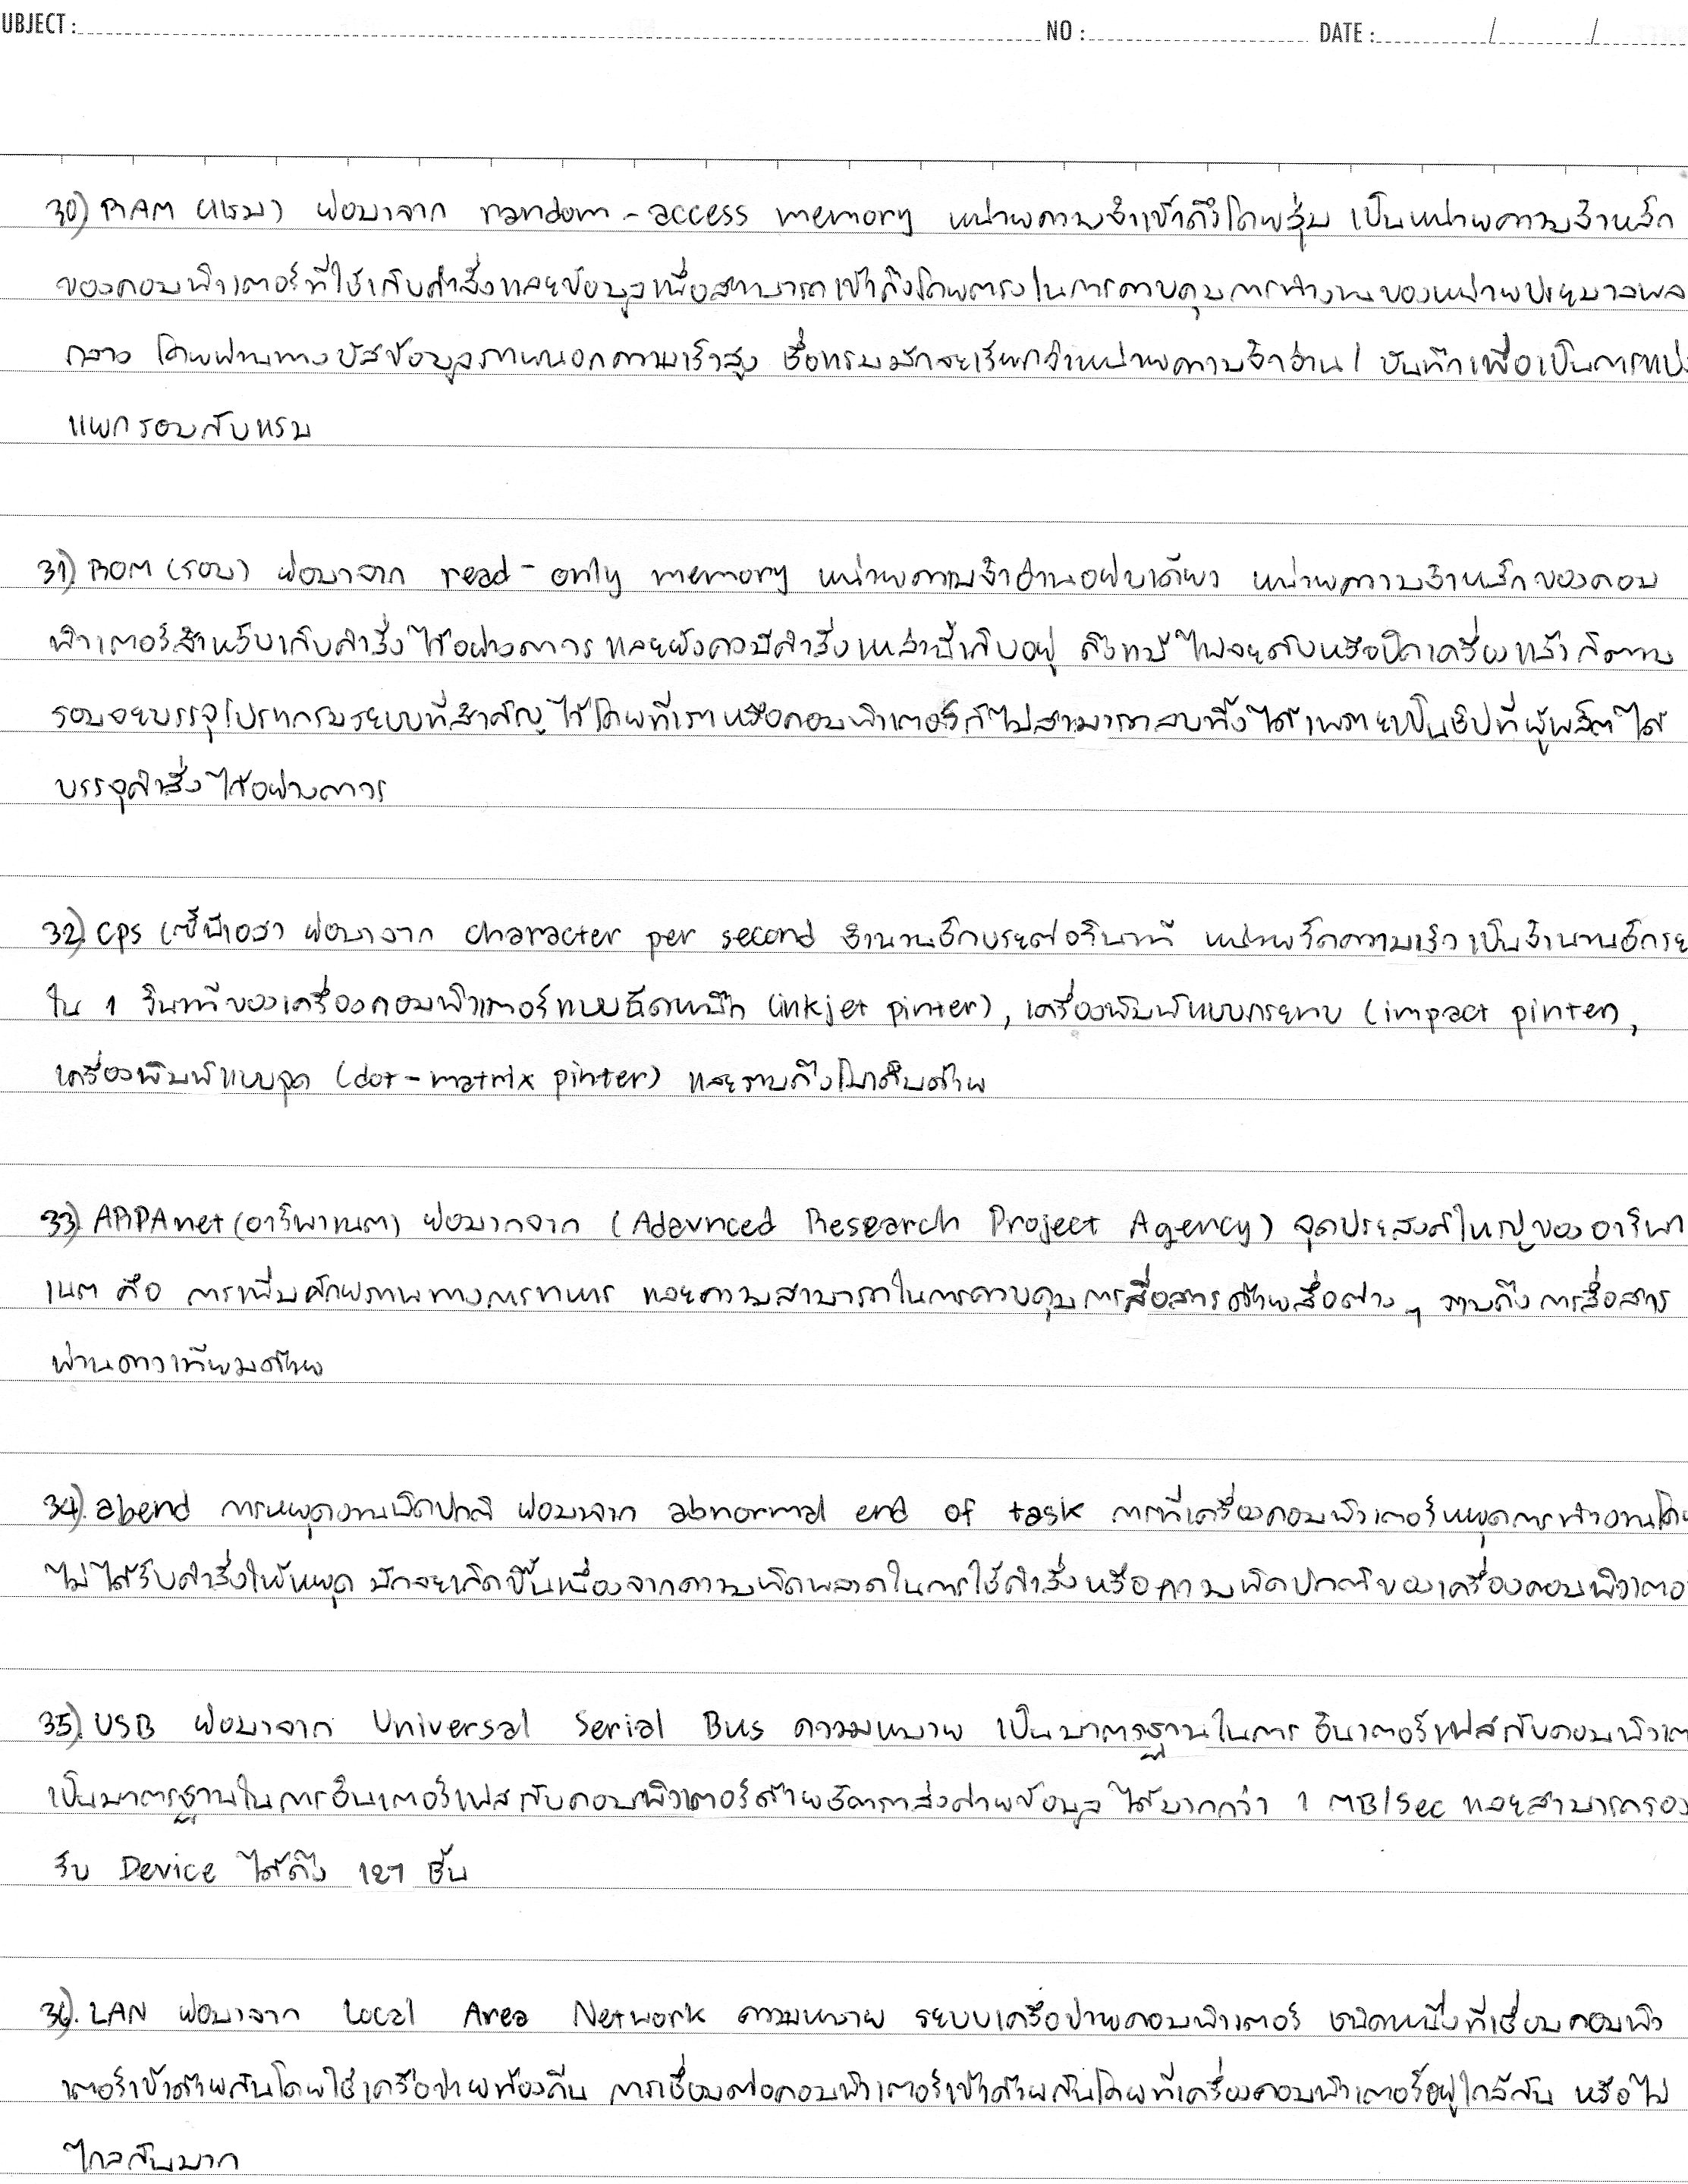 UBJECT :
NO :
DATE : / /
30) RAM (แรม) ย่อมาจาก random - access memory หน่วยความจำเข้าถึงโดยสุ่ม เป็นหน่วยความจำหลัก
ของคอมพิวเตอร์ที่ใช้เก็บคำสั่งและข้อมูลเพื่อสามารถเข้าถึงโดยตรงในการควบคุมการทำงานของหน่วยประมวลผล
กลาง โดยผ่านทางบัสข้อมูลภายนอกความเร็วสูง ชื่อแรมมักจะเรียกว่าหน่วยความจำอ่าน / บันทึกเพื่อเป็นการแบ่ง
แยกรอมกับแรม
31). ROM (รอม) ย่อมาจาก read - only memory หน่วยความจำอ่านอย่างเดียว หน่วยความจำหลักของคอม
พิวเตอร์สำหรับเก็บคำสั่งไว้อย่างถาวร และยังคงมีคำสั่งเหล่านี้เก็บอยู่ ถึงแม้ไฟจะดับหรือปิดเครื่องแล้วก็ตาม
รอมจะบรรจุโปรแกรมระบบที่สำคัญไว้โดยที่เราหรือคอมพิวเตอร์ก็ไม่สามารถลบทิ้งได้เพราะเป็นชิปที่ผู้ผลิตได้
บรรจุคำสั่งไว้อย่างถาวร
32). cps (ซีพีเอส) ย่อมาจาก character per second จำนวนอักขระต่อวินาที หน่วยวัดความเร็วเป็นจำนวนอักระ
ใน 1 วินาทีของเครื่องคอมพิวเตอร์แบบฉีดหมึก (inkjet pinter), เครื่องพิมพ์แบบกระทบ (impact pinter),
เครื่องพิมพ์แบบจุด (dot - matrix pinter) และรวมถึงโมเด็มด้วย
33). ARPAnet (อาร์พาเนต) ย่อมากจาก (Adavnced Research Project Agency) จุดประสงค์ใหญ่ของอาร์พา
เนต คือ การเพิ่มศักยภาพทางการทหาร และความสามารถในการควบคุมการสื่อสารด้วยสื่อต่าง ๆ รวมถึงการสื่อสาร
ผ่านดาวเทียมด้วย
34). abend การหยุดงานผิดปกติ ย่อมาจาก abnormal end of task การที่เครื่องคอมพิวเตอร์หยุดการทำงานโดย
ไม่ได้รับคำสั่งให้หยุด มักจะเกิดขึ้นเนื่องจากความผิดพลาดในการใช้คำสั่งหรือความผิดปกติของเครื่องคอมพิวเตอร์
35). USB ย่อมาจาก Universal Serial Bus ความหมาย เป็นมาตรฐานในการ อินเตอร์เฟสกับคอมพิวเต
เป็นมาตรฐานในการอินเตอร์เฟสกับคอมพิวเตอร์ด้วยอัตราส่งถ่ายข้อมูล ได้มากกว่า 1 MB/Sec และสามารถรอง
รับ Device ได้ถึง 127 ชิ้น
36). LAN ย่อมาจาก Local Area Network ความหมาย ระบบเครือข่ายคอมพิวเตอร์ ชนิดหนึ่งที่เชื่อมคอมพิว
เตอร์เข้าด้วยกันโดยใช้เครือข่ายท้องถิ่น การเชื่อมต่อคอมพิวเตอร์เข้าด้วยกันโดยที่เครื่องคอมพิวเตอร์อยู่ใกล้กัน หรือไม่
ไกลกันมาก